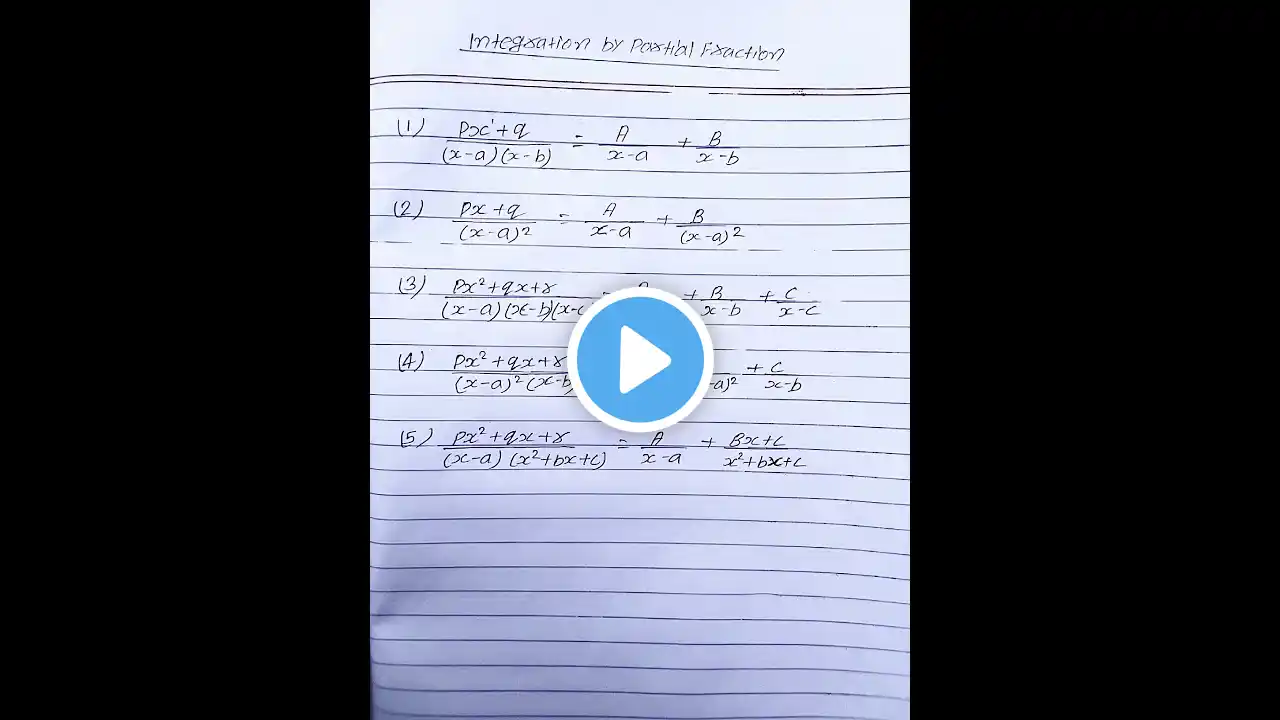 Integration by Partial Fraction
(1) px+q/(x-a)(x-b) = A/x-a + B/x-b
(2) px+q/(x-a)² = A/x-a + B/(x-a)²
(3) px²+qx+r/(x-a)(x-b)(x-c + B/x-b + C/x-c
(4) px²+qx+r/(x-a)²(x-b -a)² + C/x-b
(5) px²+qx+r/(x-a)(x²+bx+c) = A/x-a + Bx+C/x²+bx+c